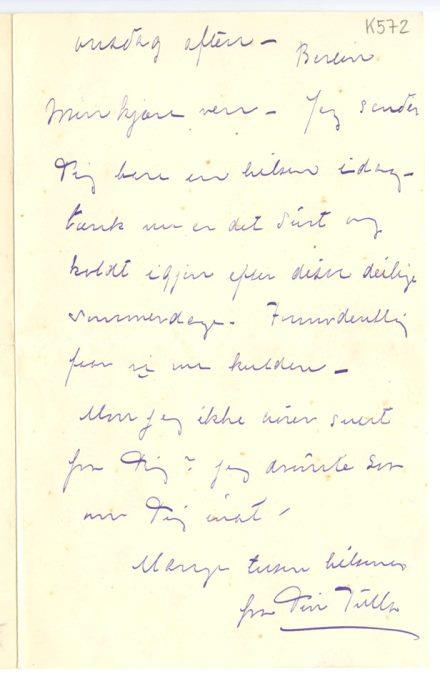 K572
onsdag aften –
Berlin
Min kjære ven – Jeg sender
Dig bare en hilsen idag –
tænk nu er det surt og
koldt igjen efter disse deilige
sommerdage. Formodentlig
faar vi nu kulden –
Mon jeg ikke hører snart
fra Dig? Jeg drømte
om Dig inat!
Mange tusen hilsener
fra Din Tulla